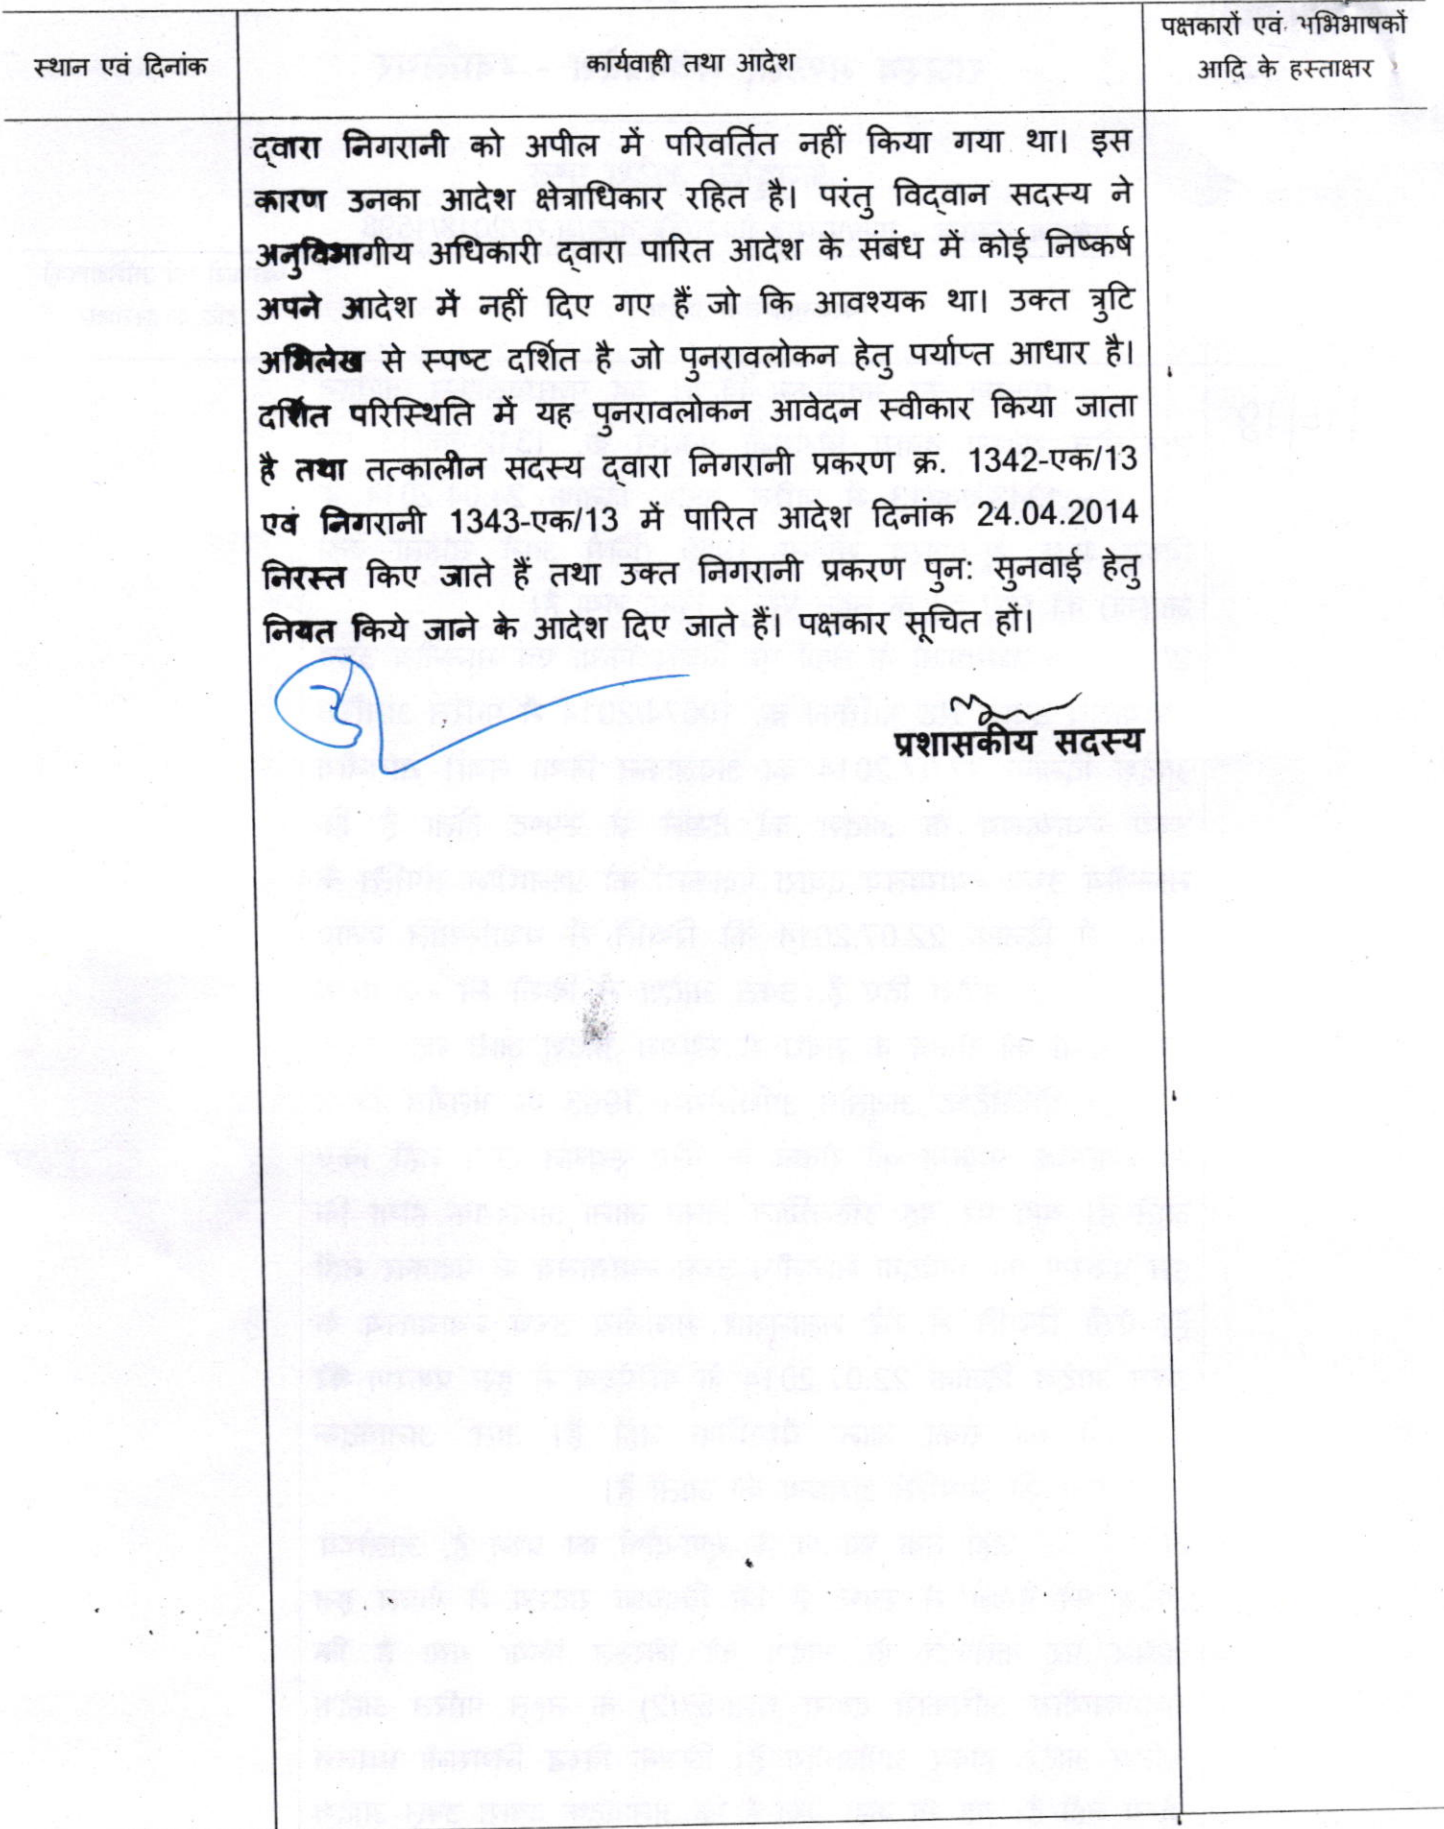 स्थान एवं दिनांक
कार्यवाही तथा आदेश
पक्षकारों एवं भभिभाषकों
आदि के हस्ताक्षर
द्वारा निगरानी को अपील में परिवर्तित नहीं किया गया था। इस
कारण उनका आदेश क्षेत्राधिकार रहित है। परंतु विद्वान सदस्य ने
अनुविभागीय अधिकारी द्वारा पारित आदेश के संबंध में कोई निष्कर्ष
अपने आदेश में नहीं दिए गए हैं जो कि आवश्यक था। उक्त त्रुटि
अभिलेख से स्पष्ट दर्शित है जो पुनरावलोकन हेतु पर्याप्त आधार है।
दर्शित परिस्थिति में यह पुनरावलोकन आवेदन स्वीकार किया जाता
है तथा तत्कालीन सदस्य द्वारा निगरानी प्रकरण क्र. 1342-एक/13
एवं निगरानी 1343-एक/13 में पारित आदेश दिनांक 24.04.2014
निरस्त किए जाते हैं तथा उक्त निगरानी प्रकरण पुन: सुनवाई हेतु
नियत किये जाने के आदेश दिए जाते हैं। पक्षकार सूचित हों।
प्रशासकीय सदस्य